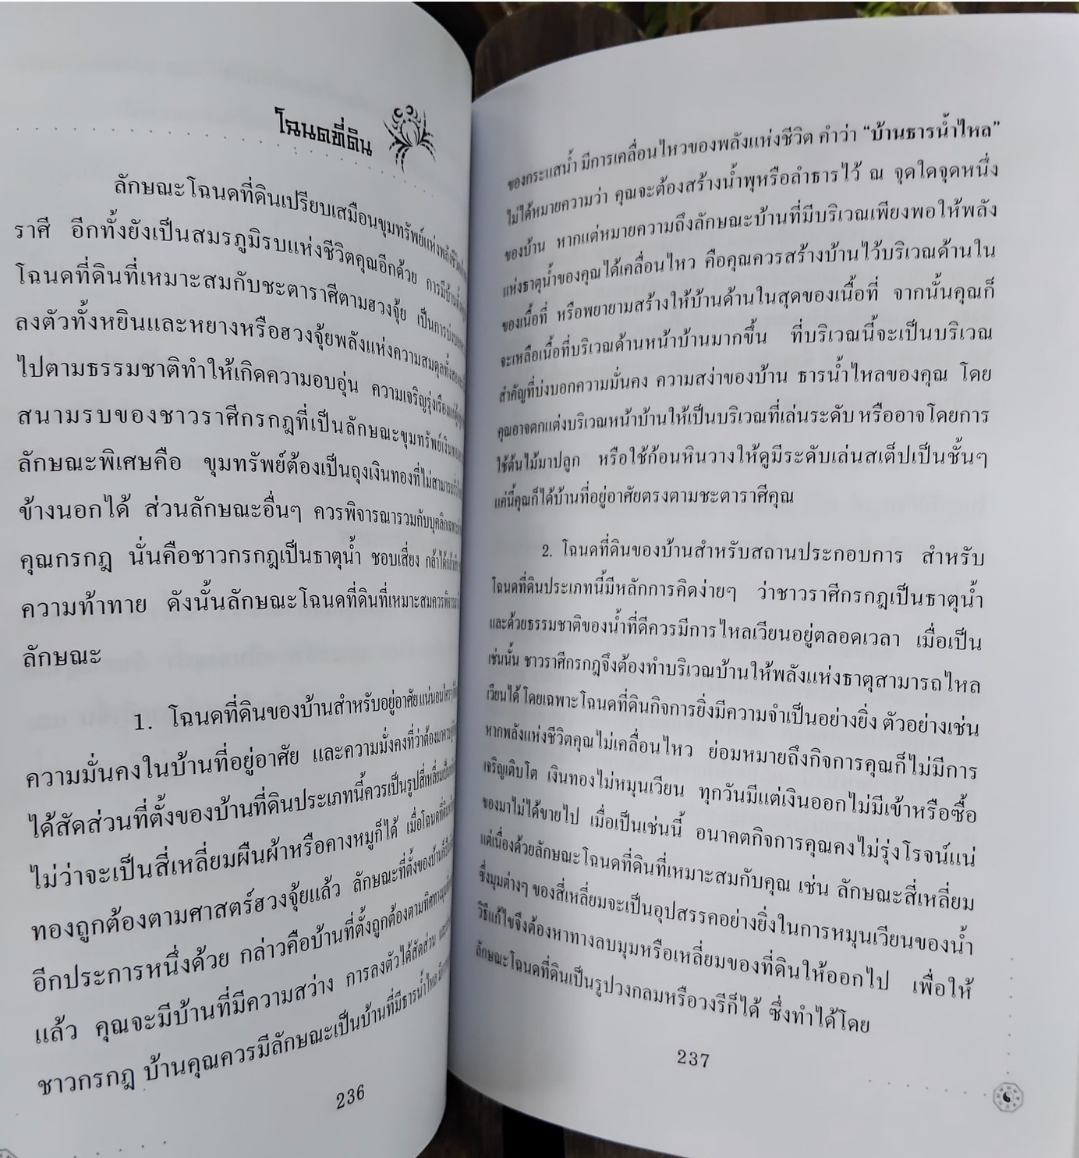 โฉนดที่ดิน
ลักษณะโฉนดที่ดินเปรียบเสมือนขุมทรัพย์แห่งพลังชีวิต
ราศี อีกทั้งยังเป็นสมรภูมิรบแห่งชีวิตคุณอีกด้วย การมีบ้าน
โฉนดที่ดินที่เหมาะสมกับชะตาราศีตามฮวงจุ้ย เป็นการ
ลงตัวทั้งหยินและหยางหรือฮวงจุ้ยพลังแห่งความสมดุล
ไปตามธรรมชาติทำให้เกิดความอบอุ่น ความเจริญรุ่งเรือง
สนามรบของชาวราศีกรกฎที่เป็นลักษณะขุมทรัพย์
ลักษณะพิเศษคือ ขุมทรัพย์ต้องเป็นถุงเงินทองที่ไม่สามารถ
ข้างนอกได้ ส่วนลักษณะอื่นๆ ควรพิจารณารวมกับบุคลิก
คุณกรกฎ นั่นคือชาวกรกฎเป็นธาตุน้ำ ชอบเสี่ยง กล้าได้
ความท้าทาย ดังนั้นลักษณะโฉนดที่ดินที่เหมาะสมควร
ลักษณะ
1. โฉนดที่ดินของบ้านสำหรับอยู่อาศัย
ความมั่นคงในบ้านที่อยู่อาศัย และความมั่งคงที่ว่าต้อง
ได้สัดส่วนที่ตั้งของบ้านที่ดินประเภทนี้ควรเป็นรูปสี่เหลี่ยม
ไม่ว่าจะเป็นสี่เหลี่ยมผืนผ้าหรือคางหมูก็ได้ เมื่อโฉนด
ทองถูกต้องตามศาสตร์ฮวงจุ้ยแล้ว ลักษณะที่ตั้งของบ้าน
อีกประการหนึ่งด้วย กล่าวคือบ้านที่ตั้งถูกต้องตาม
แล้ว คุณจะมีบ้านที่มีความสว่าง การลงตัวได้สัดส่วน
ชาวกรกฎ บ้านคุณควรมีลักษณะเป็นบ้านที่มีธารน้ำไหล
236
ของกระแสน้ำ มีการเคลื่อนไหวของพลังแห่งชีวิต คำว่า “บ้านธารน้ำไหล”
ไม่ได้หมายความว่า คุณจะต้องสร้างน้ำพุหรือลำธารไว้ ณ จุดใดจุดหนึ่ง
ของบ้าน หากแต่หมายความถึงลักษณะบ้านที่มีบริเวณเพียงพอให้พลัง
แห่งธาตุน้ำของคุณได้เคลื่อนไหว คือคุณควรสร้างบ้านไว้บริเวณด้านใน
ของเนื้อที่ หรือพยายามสร้างให้บ้านด้านในสุดของเนื้อที่ จากนั้นคุณก็
จะเหลือเนื้อที่บริเวณด้านหน้าบ้านมากขึ้น ที่บริเวณนี้จะเป็นบริเวณ
สำคัญที่บ่งบอกความมั่นคง ความสง่าของบ้าน ธารน้ำไหลของคุณ โดย
คุณอาจตกแต่งบริเวณหน้าบ้านให้เป็นบริเวณที่เล่นระดับ หรืออาจโดยการ
ใช้ต้นไม้มาปลูก หรือใช้ก้อนหินวางให้ดูมีระดับเล่นสเต็ปเป็นชั้นๆ
แค่นี้คุณก็ได้บ้านที่อยู่อาศัยตรงตามชะตาราศีคุณ
2. โฉนดที่ดินของบ้านสำหรับสถานประกอบการ สำหรับ
โฉนดที่ดินประเภทนี้มีหลักการคิดง่ายๆ ว่าชาวราศีกรกฎเป็นธาตุน้ำ
และด้วยธรรมชาติของน้ำที่ดีควรมีการไหลเวียนอยู่ตลอดเวลา เมื่อเป็น
เช่นนั้น ชาวราศีกรกฎจึงต้องทำบริเวณบ้านให้พลังแห่งธาตุสามารถไหล
เวียนได้ โดยเฉพาะโฉนดที่ดินกิจการยิ่งมีความจำเป็นอย่างยิ่ง ตัวอย่างเช่น
หากพลังแห่งชีวิตคุณไม่เคลื่อนไหว ย่อมหมายถึงกิจการคุณก็ไม่มีการ
เจริญเติบโต เงินทองไม่หมุนเวียน ทุกวันมีแต่เงินออกไม่มีเข้าหรือซื้อ
ของมาไม่ได้ขายไป เมื่อเป็นเช่นนี้ อนาคตกิจการคุณคงไม่รุ่งโรจน์แน่
แต่เนื่องด้วยลักษณะโฉนดที่ดินที่เหมาะสมกับคุณ เช่น ลักษณะสี่เหลี่ยม
ซึ่งมุมต่างๆ ของสี่เหลี่ยมจะเป็นอุปสรรคอย่างยิ่งในการหมุนเวียนของน้ำ
วิธีแก้ไขจึงต้องหาทางลบมุมหรือเหลี่ยมของที่ดินให้ออกไป เพื่อให้
ลักษณะโฉนดที่ดินเป็นรูปวงกลมหรือวงรีก็ได้ ซึ่งทำได้โดย
237